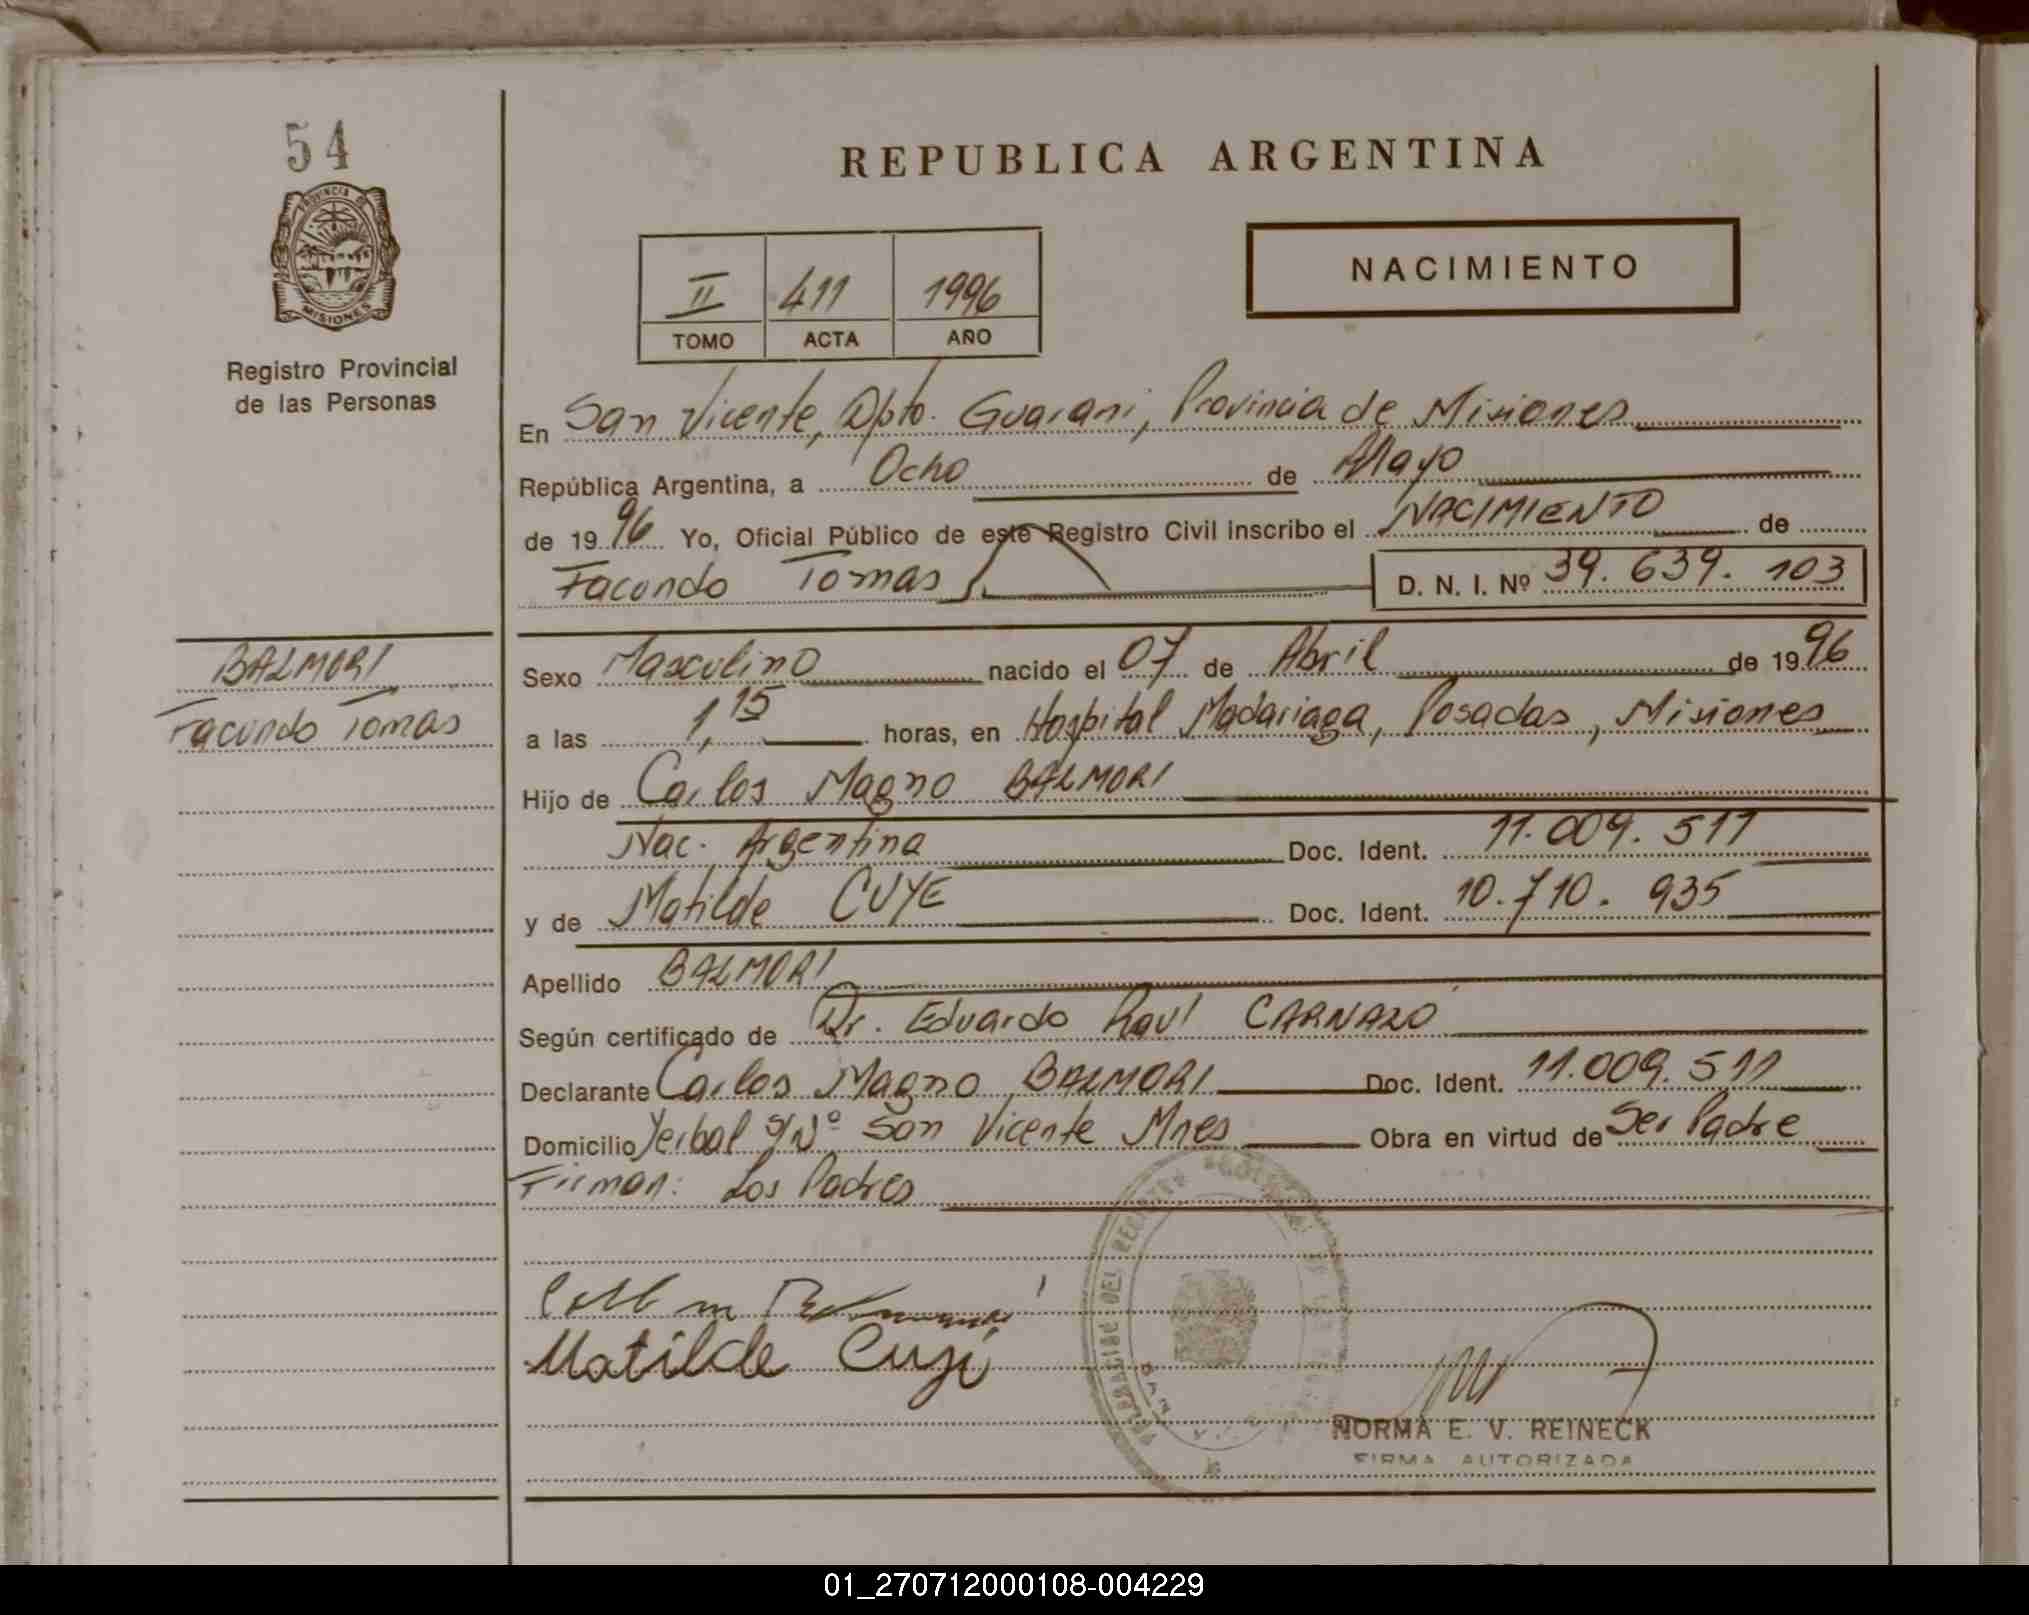 54
PROVINCIA DE
MISIONES
Registro Provincial
de las Personas
REPUBLICA ARGENTINA
II 411 1996
TOMO ACTA AÑO
NACIMIENTO
En San Vicente, Dpto. Guarani, Provincia de Misiones
República Argentina, a Ocho de Mayo
de 1996 Yo, Oficial Público de este Registro Civil inscribo el NACIMIENTO de
Facundo Tomas D. N. I. Nº 39.639.103
BALMORI
Facundo Tomas
Sexo Masculino nacido el 07 de Abril de 1996
a las 1,15 horas, en Hospital Madariaga, Posadas, Misiones
Hijo de Carlos Magno BALMORI
Nac. Argentina Doc. Ident. 11.009.511
y de Matilde CUYE Doc. Ident. 10.710.935
Apellido BALMORI
Según certificado de Dr. Eduardo Raul
Declarante Carlos Magno BALMORI Doc. Ident. 11.009.511
Domicilio Yerbal S/Nº San Vicente Mnes Obra en virtud de Ser Padre
Firman: Los Padres
Matilde
NORMA E. V. REINECK
FIRMA AUTORIZADA
01_270712000108-004229